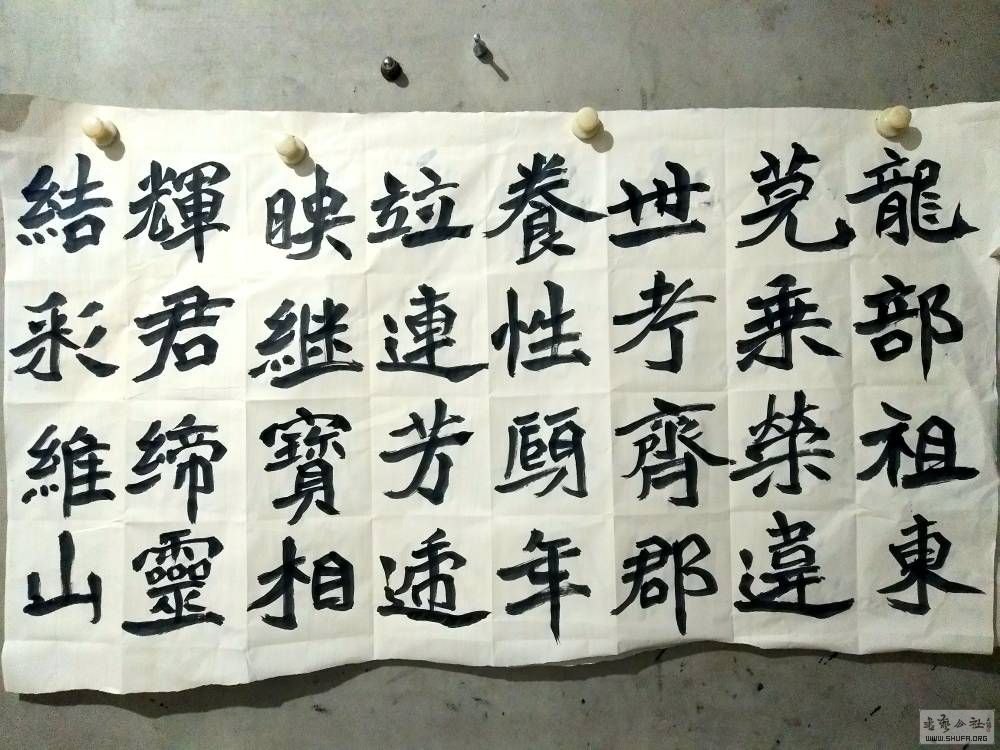 龍部祖東
莞乗榮違
世考齊郡
養性頤年
竝連芳遞
映継寶相
輝君締靈
結彩維山
书艺公社
WWW.SHUFA.ORG